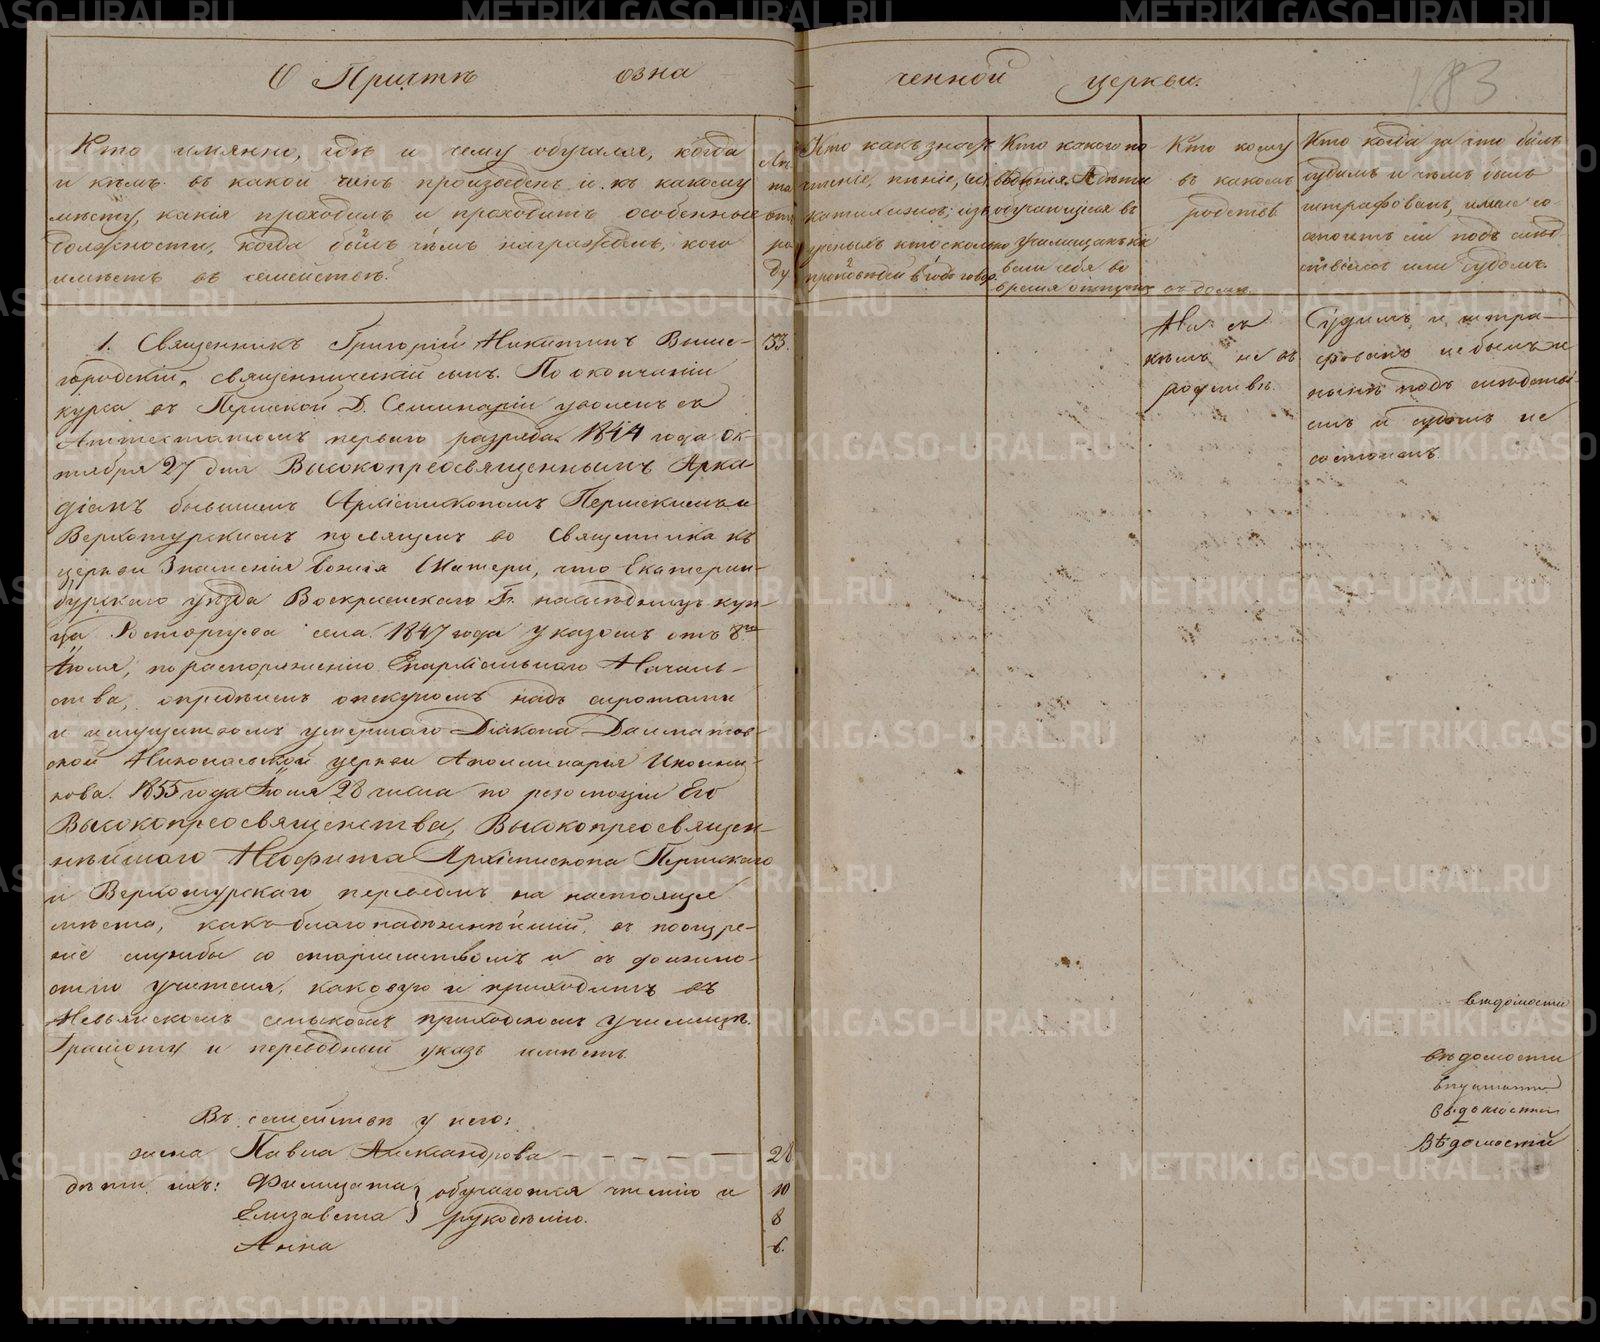 О Причтѣ озна
ченной церкви.
183
Кто имянно, гдѣ и чему обучался, когда
и кѣмъ въ какой чинъ произведенъ и къ какому
мѣсту, какія проходилъ и проходитъ особенныя
должности, когда былъ чѣмъ награжденъ, кого
имѣетъ въ семействѣ?
Лѣ
та
отъ
ро
ду
Кто какъ знаетъ
чтеніе, пѣніе, и
катихизисъ; изъ
ученыхъ кто сколько
проповѣдей въ годъ говор.
Кто какого по-
веденія. А дѣти
обучающіяся въ
училищахъ какъ
вели себя во
время отпуска
въ домъ.
Кто кому
въ какомъ
родствѣ
Кто когда за что былъ
судимъ и чѣмъ былъ
штрафованъ, или не со-
стоитъ ли подъ слѣд-
ствіемъ или судомъ.
1. Священникъ Григорій Никитинъ Выше-
городскій, священническій сынъ. По окончаніи
курса въ Пермской Д. Семинаріи уволенъ съ
Аттестатомъ перваго разряда. 1844 года Ок-
тября 27 дня Высокопреосвященнымъ Арка-
діемъ бывшимъ Архіепископомъ Пермскимъ и
Верхотурскимъ посвященъ во Священника къ
церкви Знаменія Божія Матери, что Екатерин-
бургскаго уѣзда Воскресенскаго Гг. наслѣдницъ куп-
ца Расторгуева села. 1847 года указомъ отъ 8го
Іюля, по распоряженію Епархіальнаго Началь-
ства, опредѣленъ опекуномъ надъ сиротами
и имуществомъ умершаго Діакона Далматов-
ской Николаевской церкви Аполлинарія Иконни-
кова. 1855 года Іюля 28 числа по резолюціи Его
Высокопреосвященства, Высокопреосвящен-
нѣйшаго Неофита Архіепископа Пермскаго
и Верхотурскаго переведенъ на настоящее
мѣсто, какъ благонадежнѣйшій, въ поощре-
ніе службы со старшинствомъ и съ должно-
стію учителя, каковую и приходитъ въ
Невьянскомъ сельскомъ приходскомъ училищѣ.
Грамоту и переводный указъ имѣетъ.
33.
Ни съ
кѣмъ не въ
родствѣ.
Судимъ и штра-
фованъ не былъ и
нынѣ подъ слѣдстві-
емъ и судомъ не
состоитъ.
Въ семействѣ у него:
жена Павла Александрова 28
дѣти ихъ: Филицата 10
Елизавета 8
обучаются чтенію и
рукодѣлію.
Анна 6.
вѣдомости
вѣдомости
вѣдомости
Вѣдомостей
METRIKI.GASO-URAL.RU